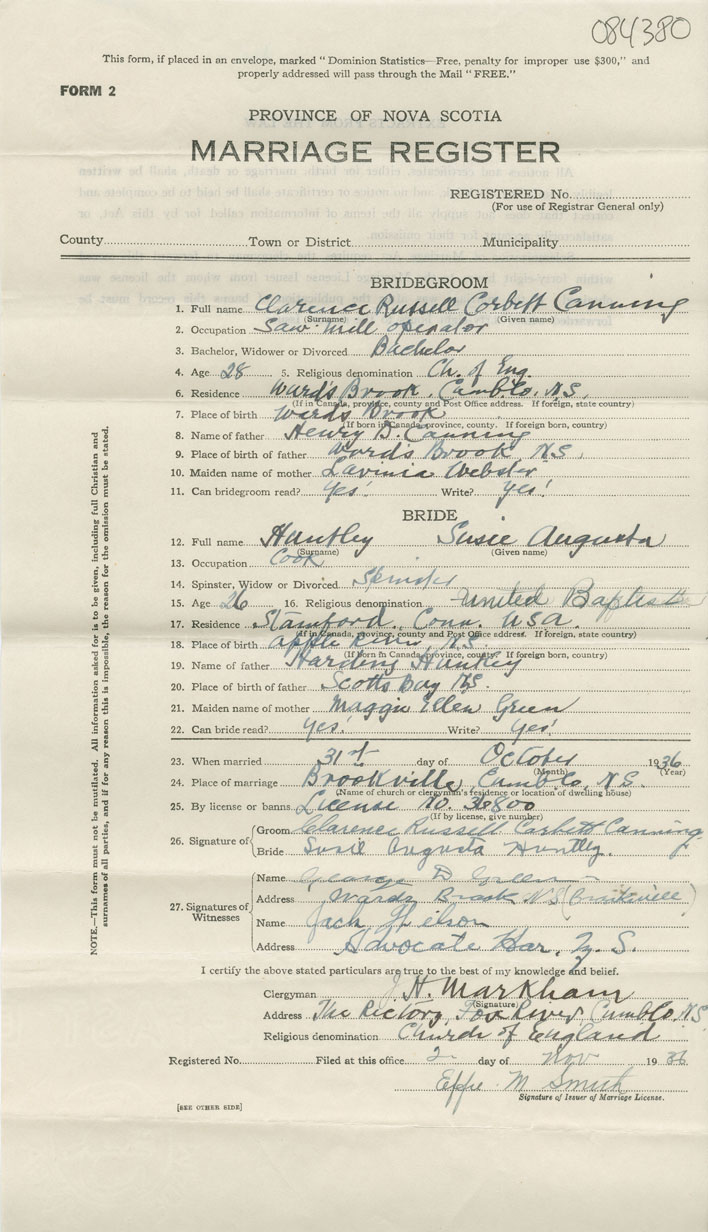 084380
This form, if placed in an envelope, marked "Dominion Statistics—Free, penalty for improper use $300," and
properly addressed will pass through the Mail "FREE."
FORM 2
PROVINCE OF NOVA SCOTIA
MARRIAGE REGISTER
REGISTERED No.
(For use of Registrar General only)
County Town or District Municipality
BRIDEGROOM
1. Full name Clarence Russell Corbett Canning
(Surname) (Given name)
2. Occupation Saw-mill operator
3. Bachelor, Widower or Divorced Bachelor
4. Age 28 5. Religious denomination Ch. of Eng.
6. Residence Wards Brook, Cumb. Co. N.S.
(If in Canada, province, county and Post Office address. If foreign, state country)
7. Place of birth Wards Brook
(If born in Canada, province, county. If foreign born, country)
8. Name of father Henry D. Canning
9. Place of birth of father Wards Brook, N.S.
10. Maiden name of mother Lavinia Webster
11. Can bridegroom read? Yes! Write? Yes!
BRIDE
12. Full name Huntley Susie Augusta
(Surname) (Given name)
13. Occupation Cook
14. Spinster, Widow or Divorced Spinster
15. Age 26 16. Religious denomination United Baptist
17. Residence Stamford, Conn. USA.
(If in Canada, province, county and Post Office address. If foreign, state country)
18. Place of birth Apple River, N.S.
(If born in Canada, province, county. If foreign born, country)
19. Name of father Harding Huntley
20. Place of birth of father Scotts Bay N.S.
21. Maiden name of mother Maggie Ellen Green
22. Can bride read? Yes! Write? Yes!
23. When married 31st day of October 1936
(Month) (Year)
24. Place of marriage Brookville, Cumb. Co., N.S.
(Name of church or clergyman's residence or location of dwelling house)
25. By license or banns License No. 36800
(If by license, give number)
26. Signature of Groom Clarence Russell Corbett Canning
Bride Susie Augusta Huntley.
27. Signatures of Witnesses
Name George D Green
Address Wards Brook N S (Brookville)
Name Jack
Address Advocate Har, N. S.
I certify the above stated particulars are true to the best of my knowledge and belief.
Clergyman J. H. Markham
(Signature)
Address The Rectory, Fox River, Cumb. Co. N.S.
Religious denomination Church of England
Registered No. Filed at this office 2 day of Nov 1936
Effie M Smith
Signature of Issuer of Marriage License.
[SEE OTHER SIDE]
NOTE.—This form must not be mutilated. All information asked for is to be given, including full Christian and
surnames of all parties, and if for any reason this is impossible, the reason for the omission must be stated.